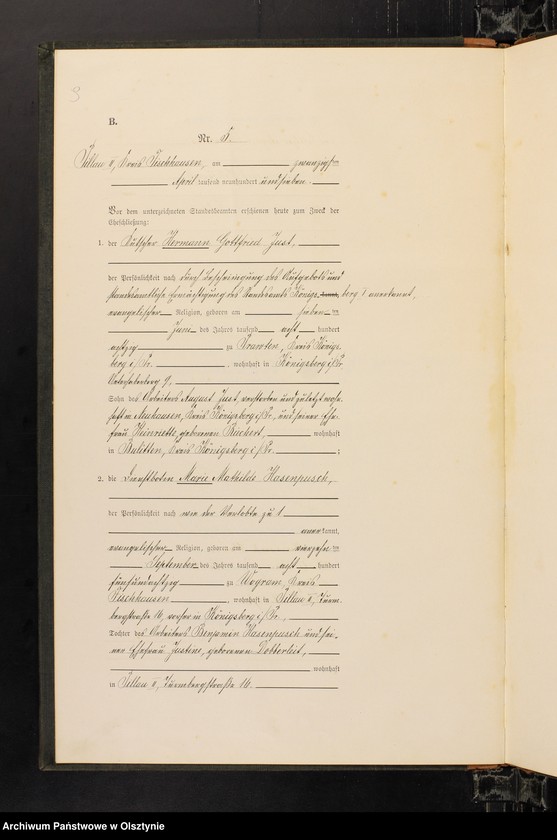 9
B.
Nr. 5.
Pillau II, Kreis Fischhausen, am zwanzigsten
April tausend neunhundert und sieben.
Vor dem unterzeichneten Standesbeamten erschienen heute zum Zweck der
Eheschließung:
1. der Kutscher Hermann Gottfried Just,
der Persönlichkeit nach durch Bescheinigung des Aufgebots und
standesamtliche Ermächtigung des Standesamts Königsberg I anerkannt,
evangelischer Religion, geboren am sieben ten
Juni des Jahres tausend acht hundert
achtzig zu Trawten, Kreis Königs-
berg i/Pr., wohnhaft in Königsberg i/Pr.
9,
Sohn des Arbeiters August Just, verstorben und zuletzt wohn-
haft in Neuhausen, Kreis Königsberg i/Pr., und seiner Ehe-
frau Heinriette, geborenen Reichert, wohnhaft
in Bulitten, Kreis Königsberg i/Pr. ;
2. die Dienstboten Marie Mathilde Hasenpusch,
der Persönlichkeit nach wie der Verlobte zu 1
anerkannt,
evangelischer Religion, geboren am vierzehn ten
September des Jahres tausend acht hundert
fünfundachtzig zu Wogram, Kreis
Fischhausen, wohnhaft in Pillau II, Turm-
bergstraße 16, vorher in Königsberg i/Pr.,
Tochter des Arbeiters Benjamin Hasenpusch und sei-
ner Ehefrau Justine, geborenen Dobberleit,
wohnhaft
in Pillau II, Turmbergstraße 16.
Archiwum Państwowe w Olsztynie